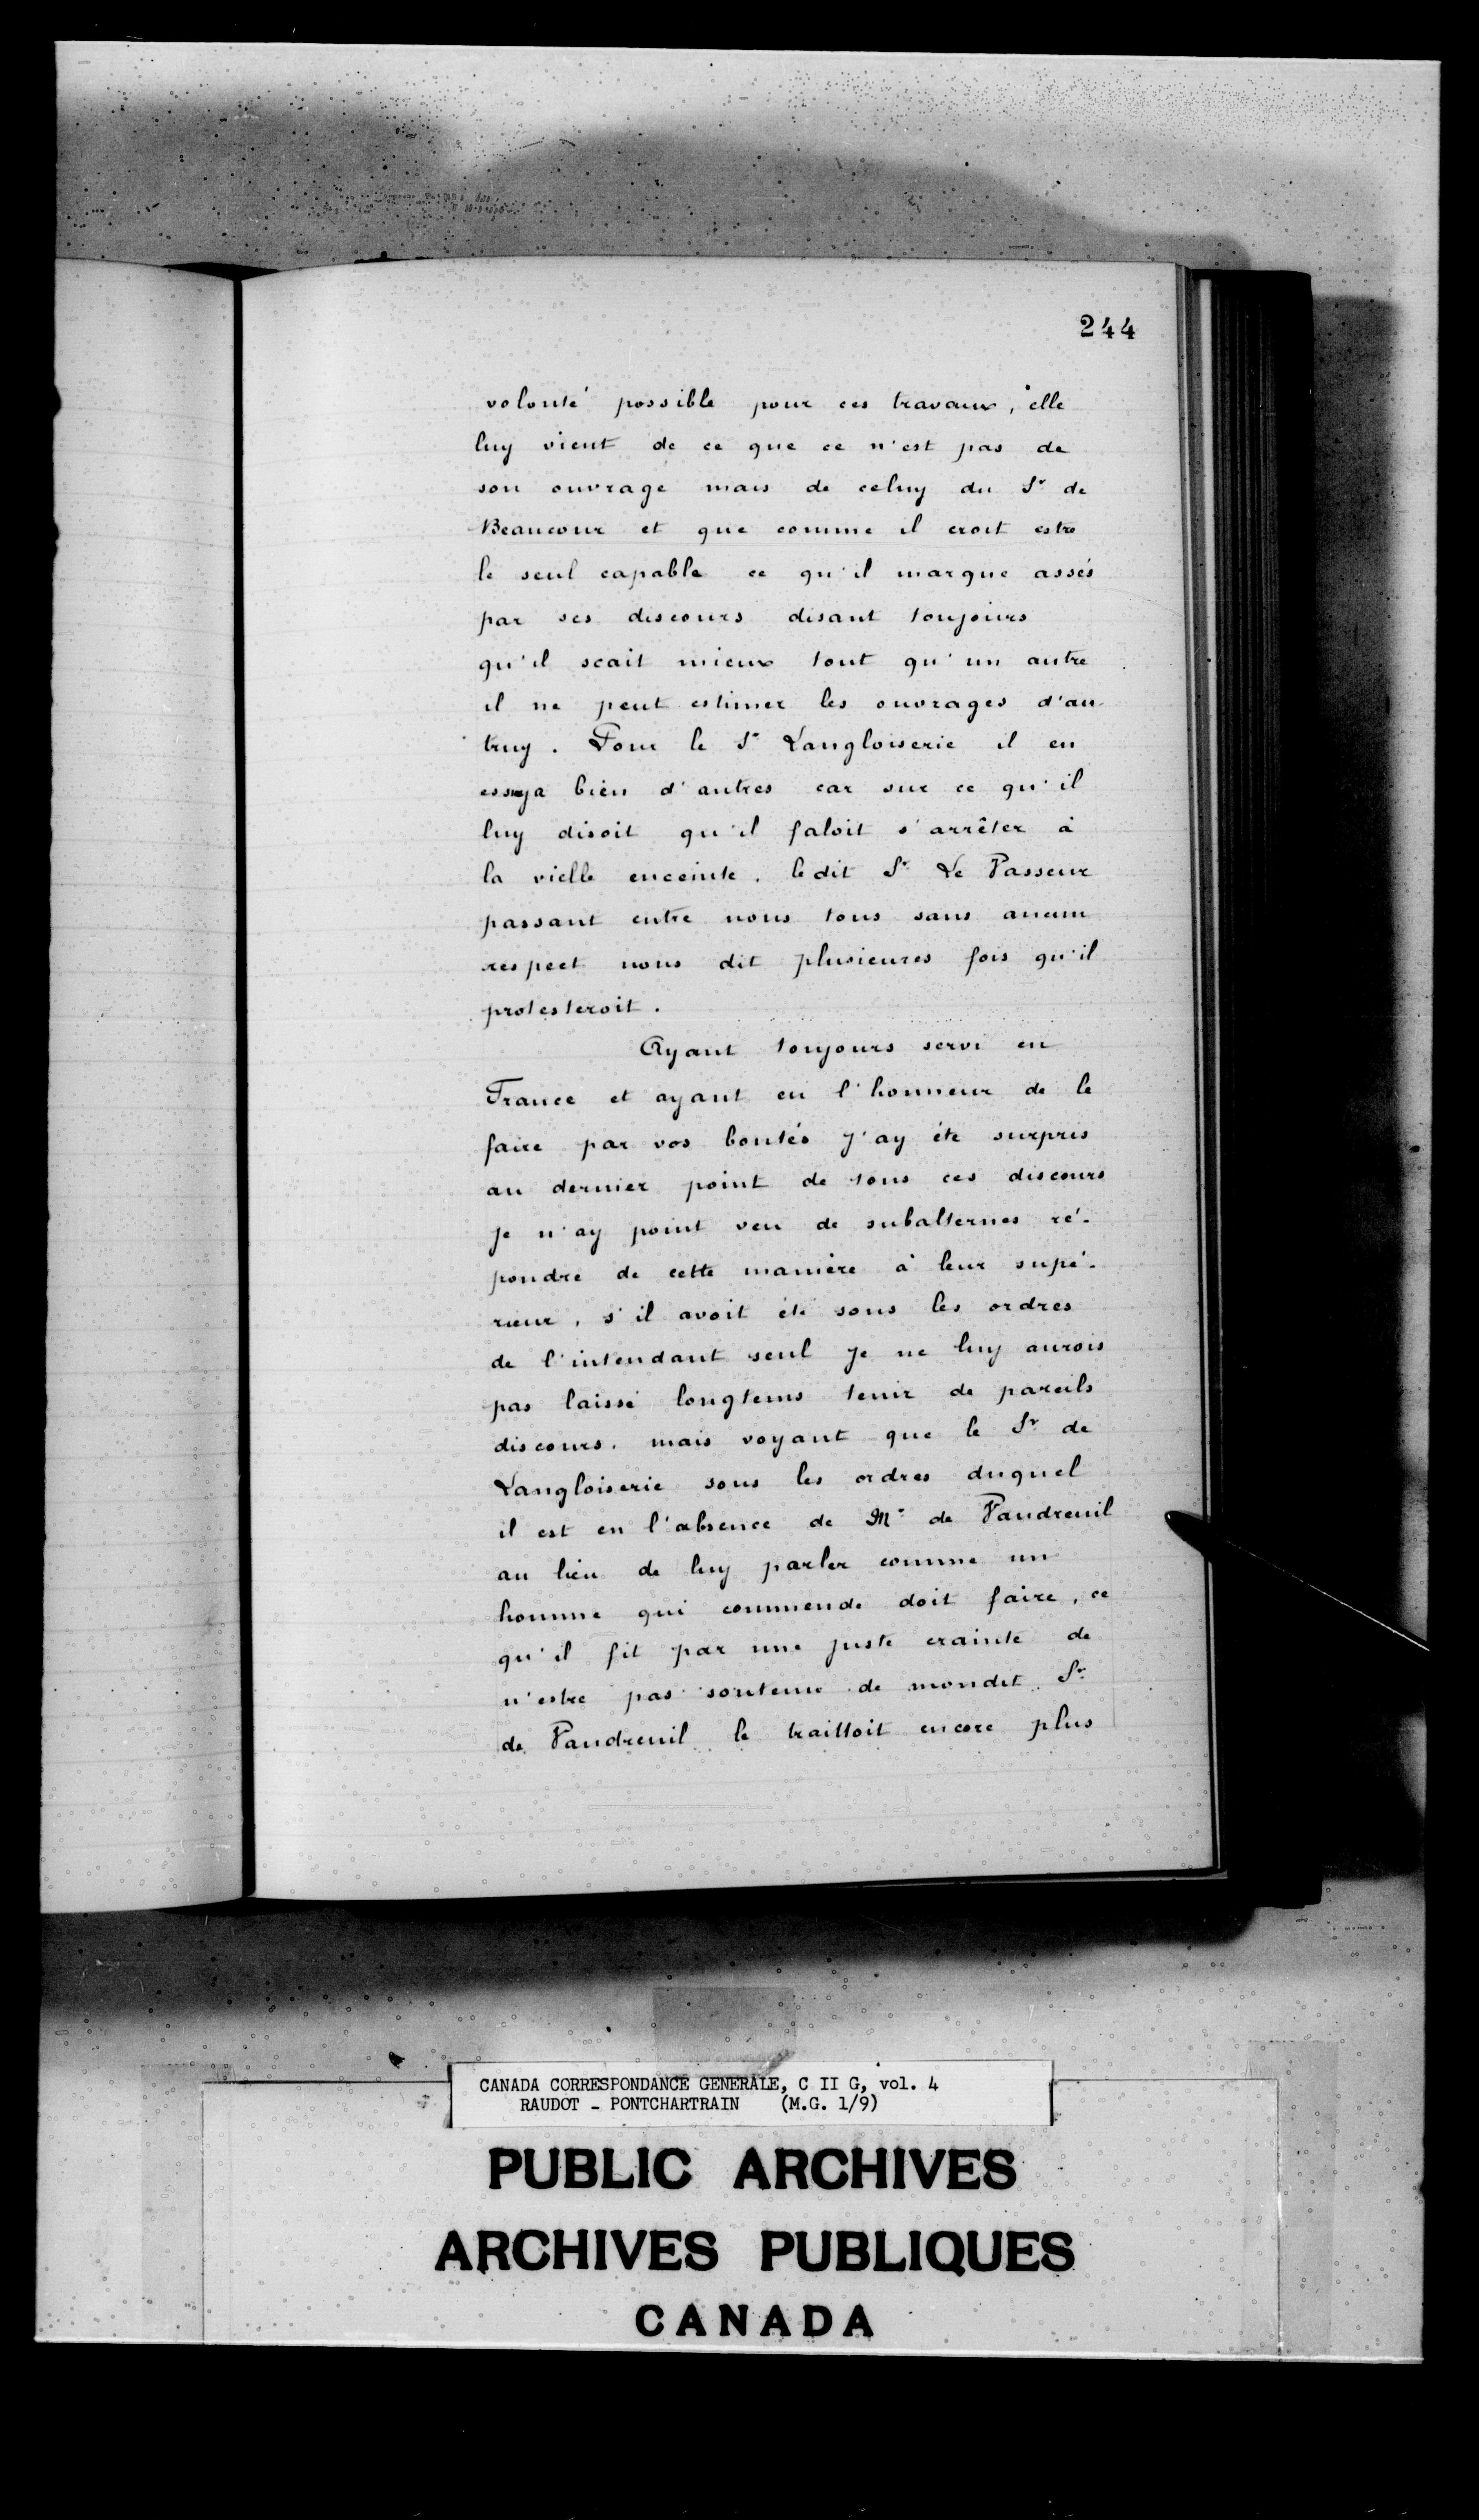 244
volonté possible pour ces travaux, elle
luy vient de ce que ce n'est pas de
son ouvrage mais de celuy du Sr de
Beaucour et que comme il croit estre
le seul capable ce qu'il marque assés
par ses discours disant toujours
qu'il scait mieux tout qu'un autre
il ne peut estimer les ouvrages d'au-
truy. Pour le Sr Langloiserie il en
essuya bien d'autres car sur ce qu'il
luy disoit qu'il faloit s'arrêter à
la vielle enceinte. le dit Sr Le Vasseur
passant entre nous tous sans aucun
respect nous dit plusieures fois qu'il
protesteroit.
Ayant toujours servi en
France et ayant eu l'honneur de le
faire par vos bontés j'ay été surpris
au dernier point de tous ces discours
je n'ay point veu de subalternes ré-
pondre de cette manière à leur supé-
rieur, s'il avoit été sous les ordres
de l'intendant seul je ne luy aurois
pas laissé longtems tenir de pareils
discours. mais voyant que le Sr de
Langloiserie sous les ordres duquel
il est en l'absence de Mr de Vaudreuil
au lieu de luy parler comme un
homme qui commende doit faire, ce
qu'il fit par une juste crainte de
n'estre pas soutenu de mondit Sr
de Vaudreuil le traittoit encore plus
CANADA CORRESPONDANCE GENERALE, C II G, vol. 4
RAUDOT - PONTCHARTRAIN (M.G. 1/9)
PUBLIC ARCHIVES
ARCHIVES PUBLIQUES
CANADA